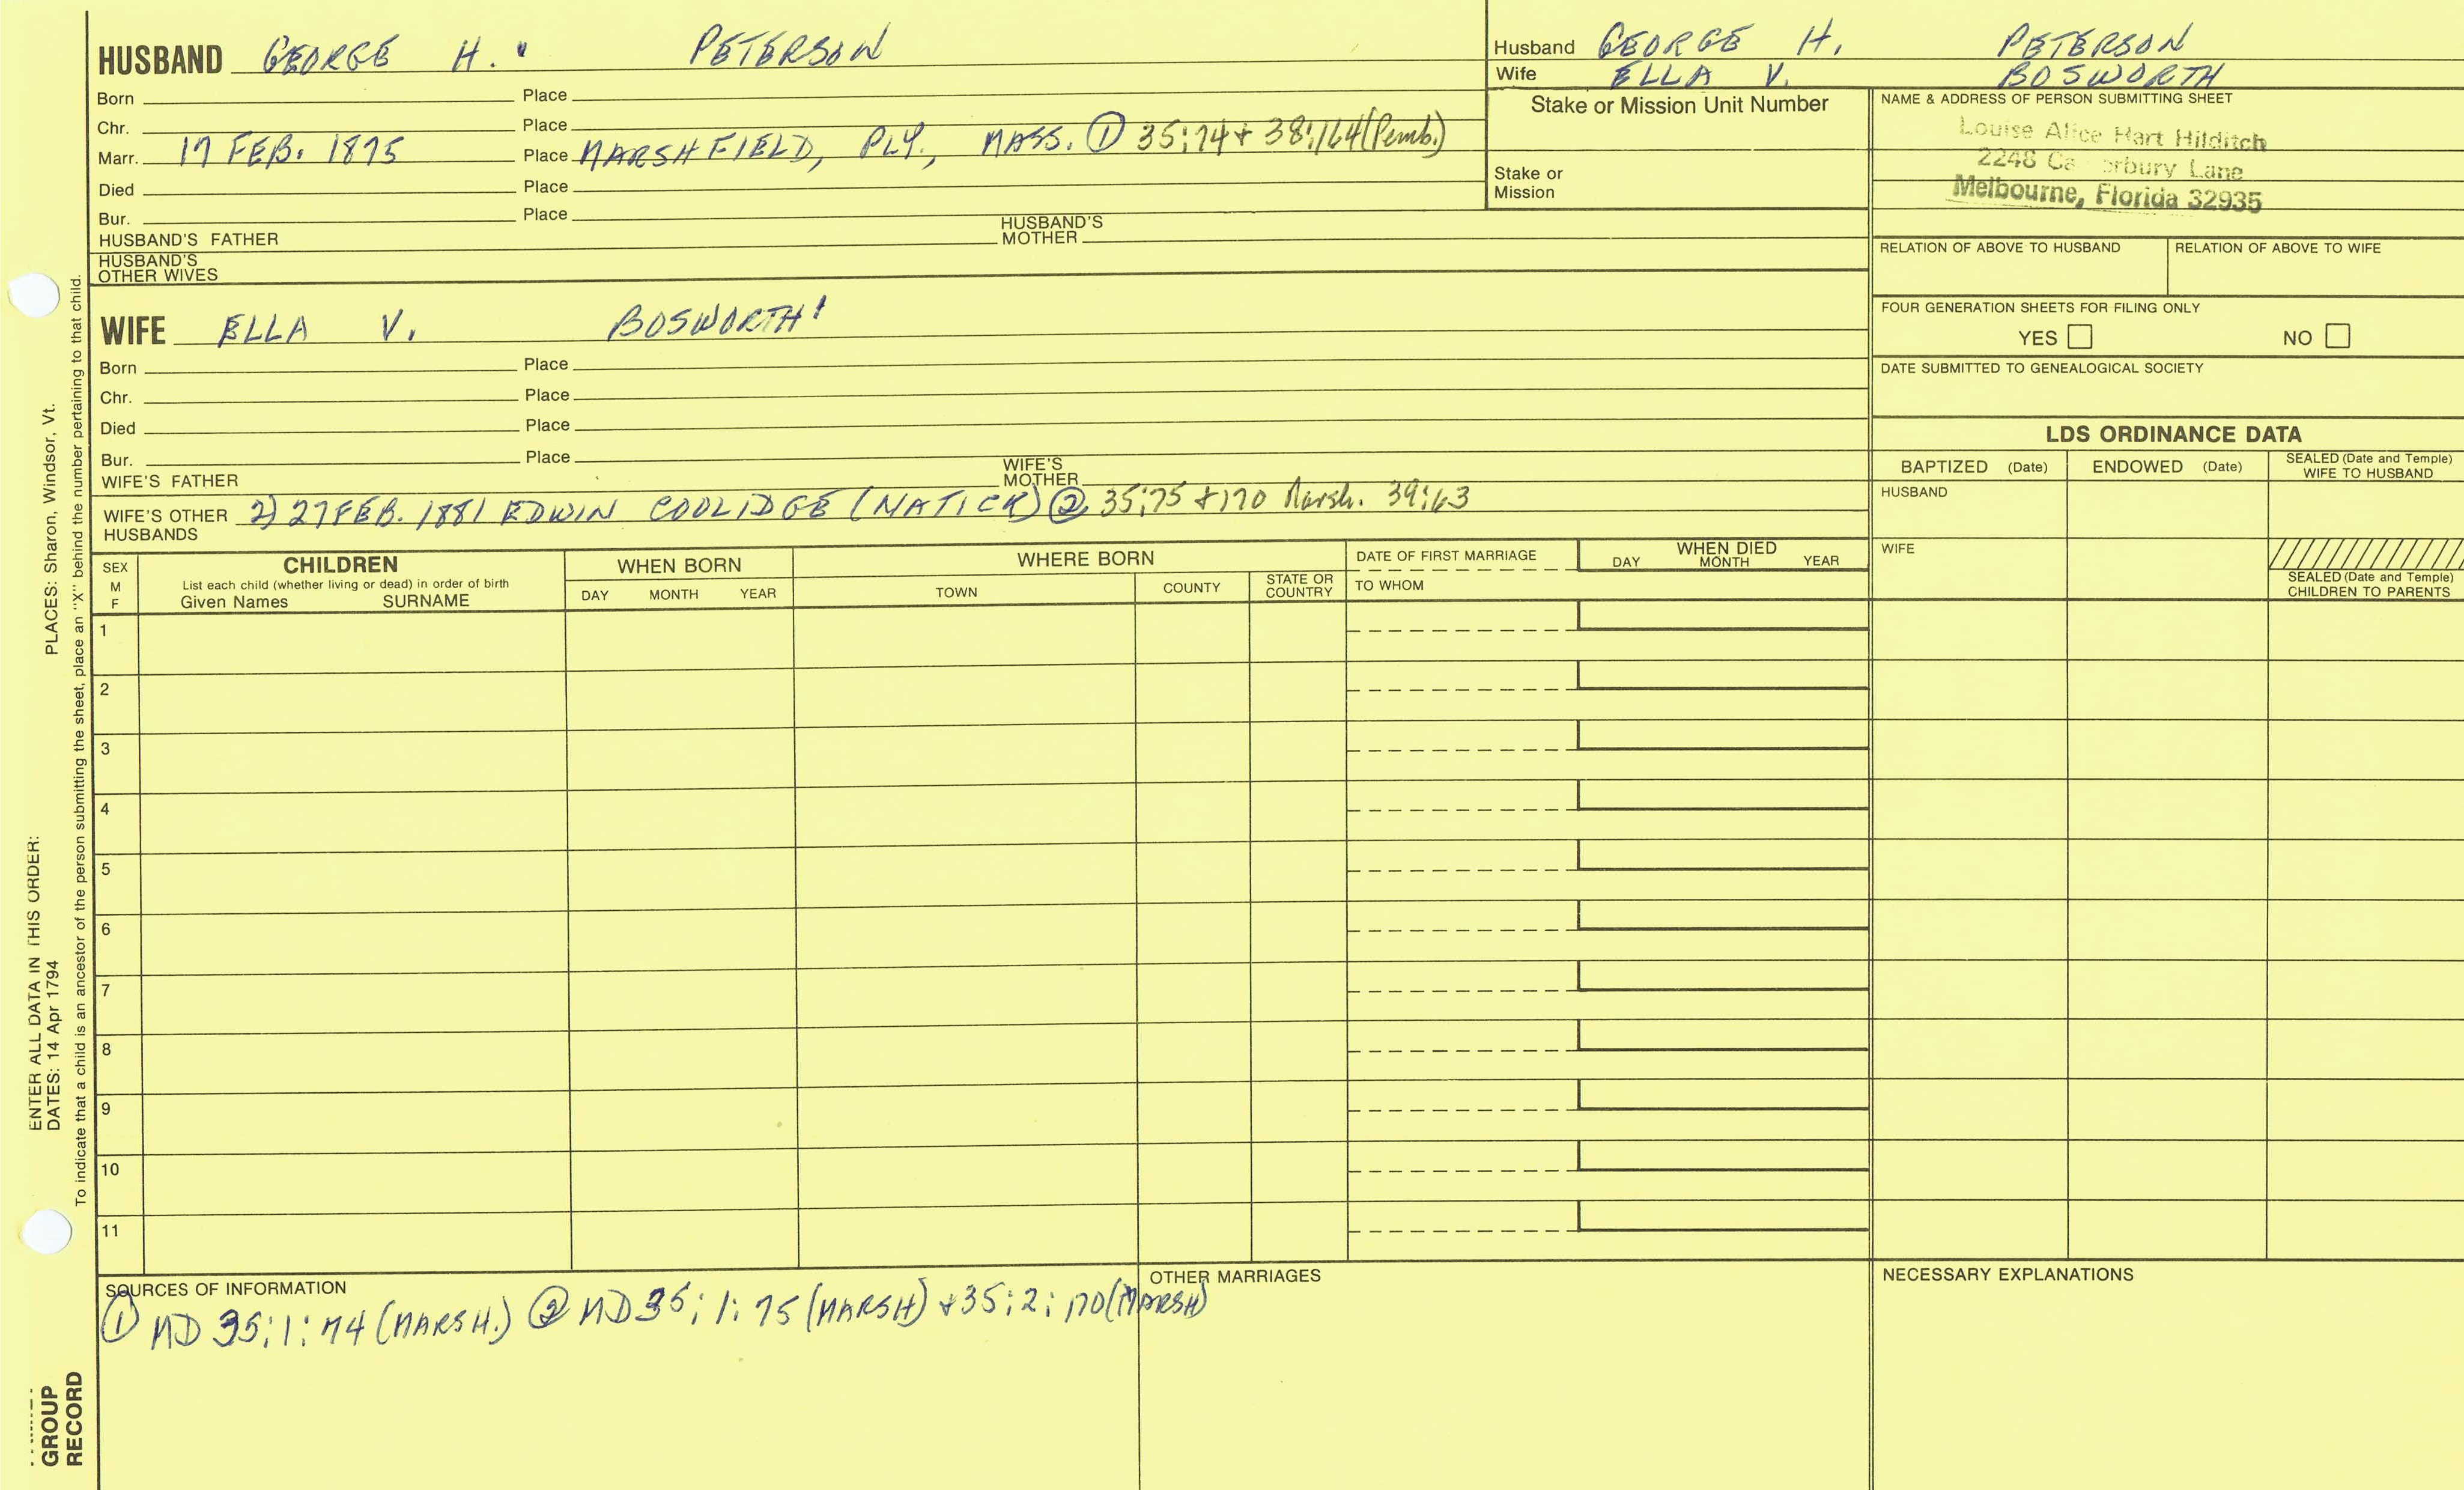 HUSBAND GEORGE H. PETERSON
Born Place
Chr. Place
Marr. 17 FEB. 1875 Place MARSHFIELD, PLY., MASS. ① 35:74 + 38:164 (Pemb.)
Died Place
Bur. Place
HUSBAND'S FATHER HUSBAND'S MOTHER
HUSBAND'S OTHER WIVES
WIFE ELLA V. BOSWORTH
Born Place
Chr. Place
Died Place
Bur. Place
WIFE'S FATHER WIFE'S MOTHER
WIFE'S OTHER HUSBANDS 2) 27 FEB. 1881 EDWIN COOLIDGE (NATICK) ② 35:75 + 170 Marsh. 39:63
Husband GEORGE H. PETERSON
Wife ELLA V. BOSWORTH
Stake or Mission Unit Number
Stake or
Mission
NAME & ADDRESS OF PERSON SUBMITTING SHEET
Louise Alice Hart Hilditch
2248 Lane
Melbourne, Florida 32935
RELATION OF ABOVE TO HUSBAND RELATION OF ABOVE TO WIFE
FOUR GENERATION SHEETS FOR FILING ONLY
YES NO
DATE SUBMITTED TO GENEALOGICAL SOCIETY
LDS ORDINANCE DATA
BAPTIZED (Date) ENDOWED (Date) SEALED (Date and Temple) WIFE TO HUSBAND
HUSBAND
WIFE
SEALED (Date and Temple)
CHILDREN TO PARENTS
SEX
M
F
CHILDREN
List each child (whether living or dead) in order of birth
Given Names SURNAME
WHEN BORN
DAY MONTH YEAR
WHERE BORN
TOWN COUNTY STATE OR COUNTRY
DATE OF FIRST MARRIAGE
TO WHOM
WHEN DIED
DAY MONTH YEAR
1
2
3
4
5
6
7
8
9
10
11
SOURCES OF INFORMATION
① MD 35:1:74 (MARSH.) ② MD 35:1:75 (MARSH) + 35:2:170 (MARSH)
OTHER MARRIAGES
NECESSARY EXPLANATIONS
ENTER ALL DATA IN THIS ORDER:
DATES: 14 Apr 1794 PLACES: Sharon, Windsor, Vt.
To indicate that a child is an ancestor of the person submitting the sheet, place an "X" behind the number pertaining to that child.
GROUP
RECORD